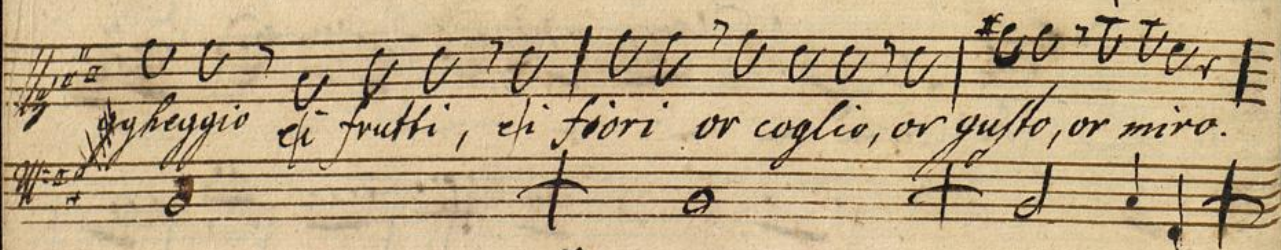 gheggio e i frutti, e i fiori or coglio, or gusto, or miro.